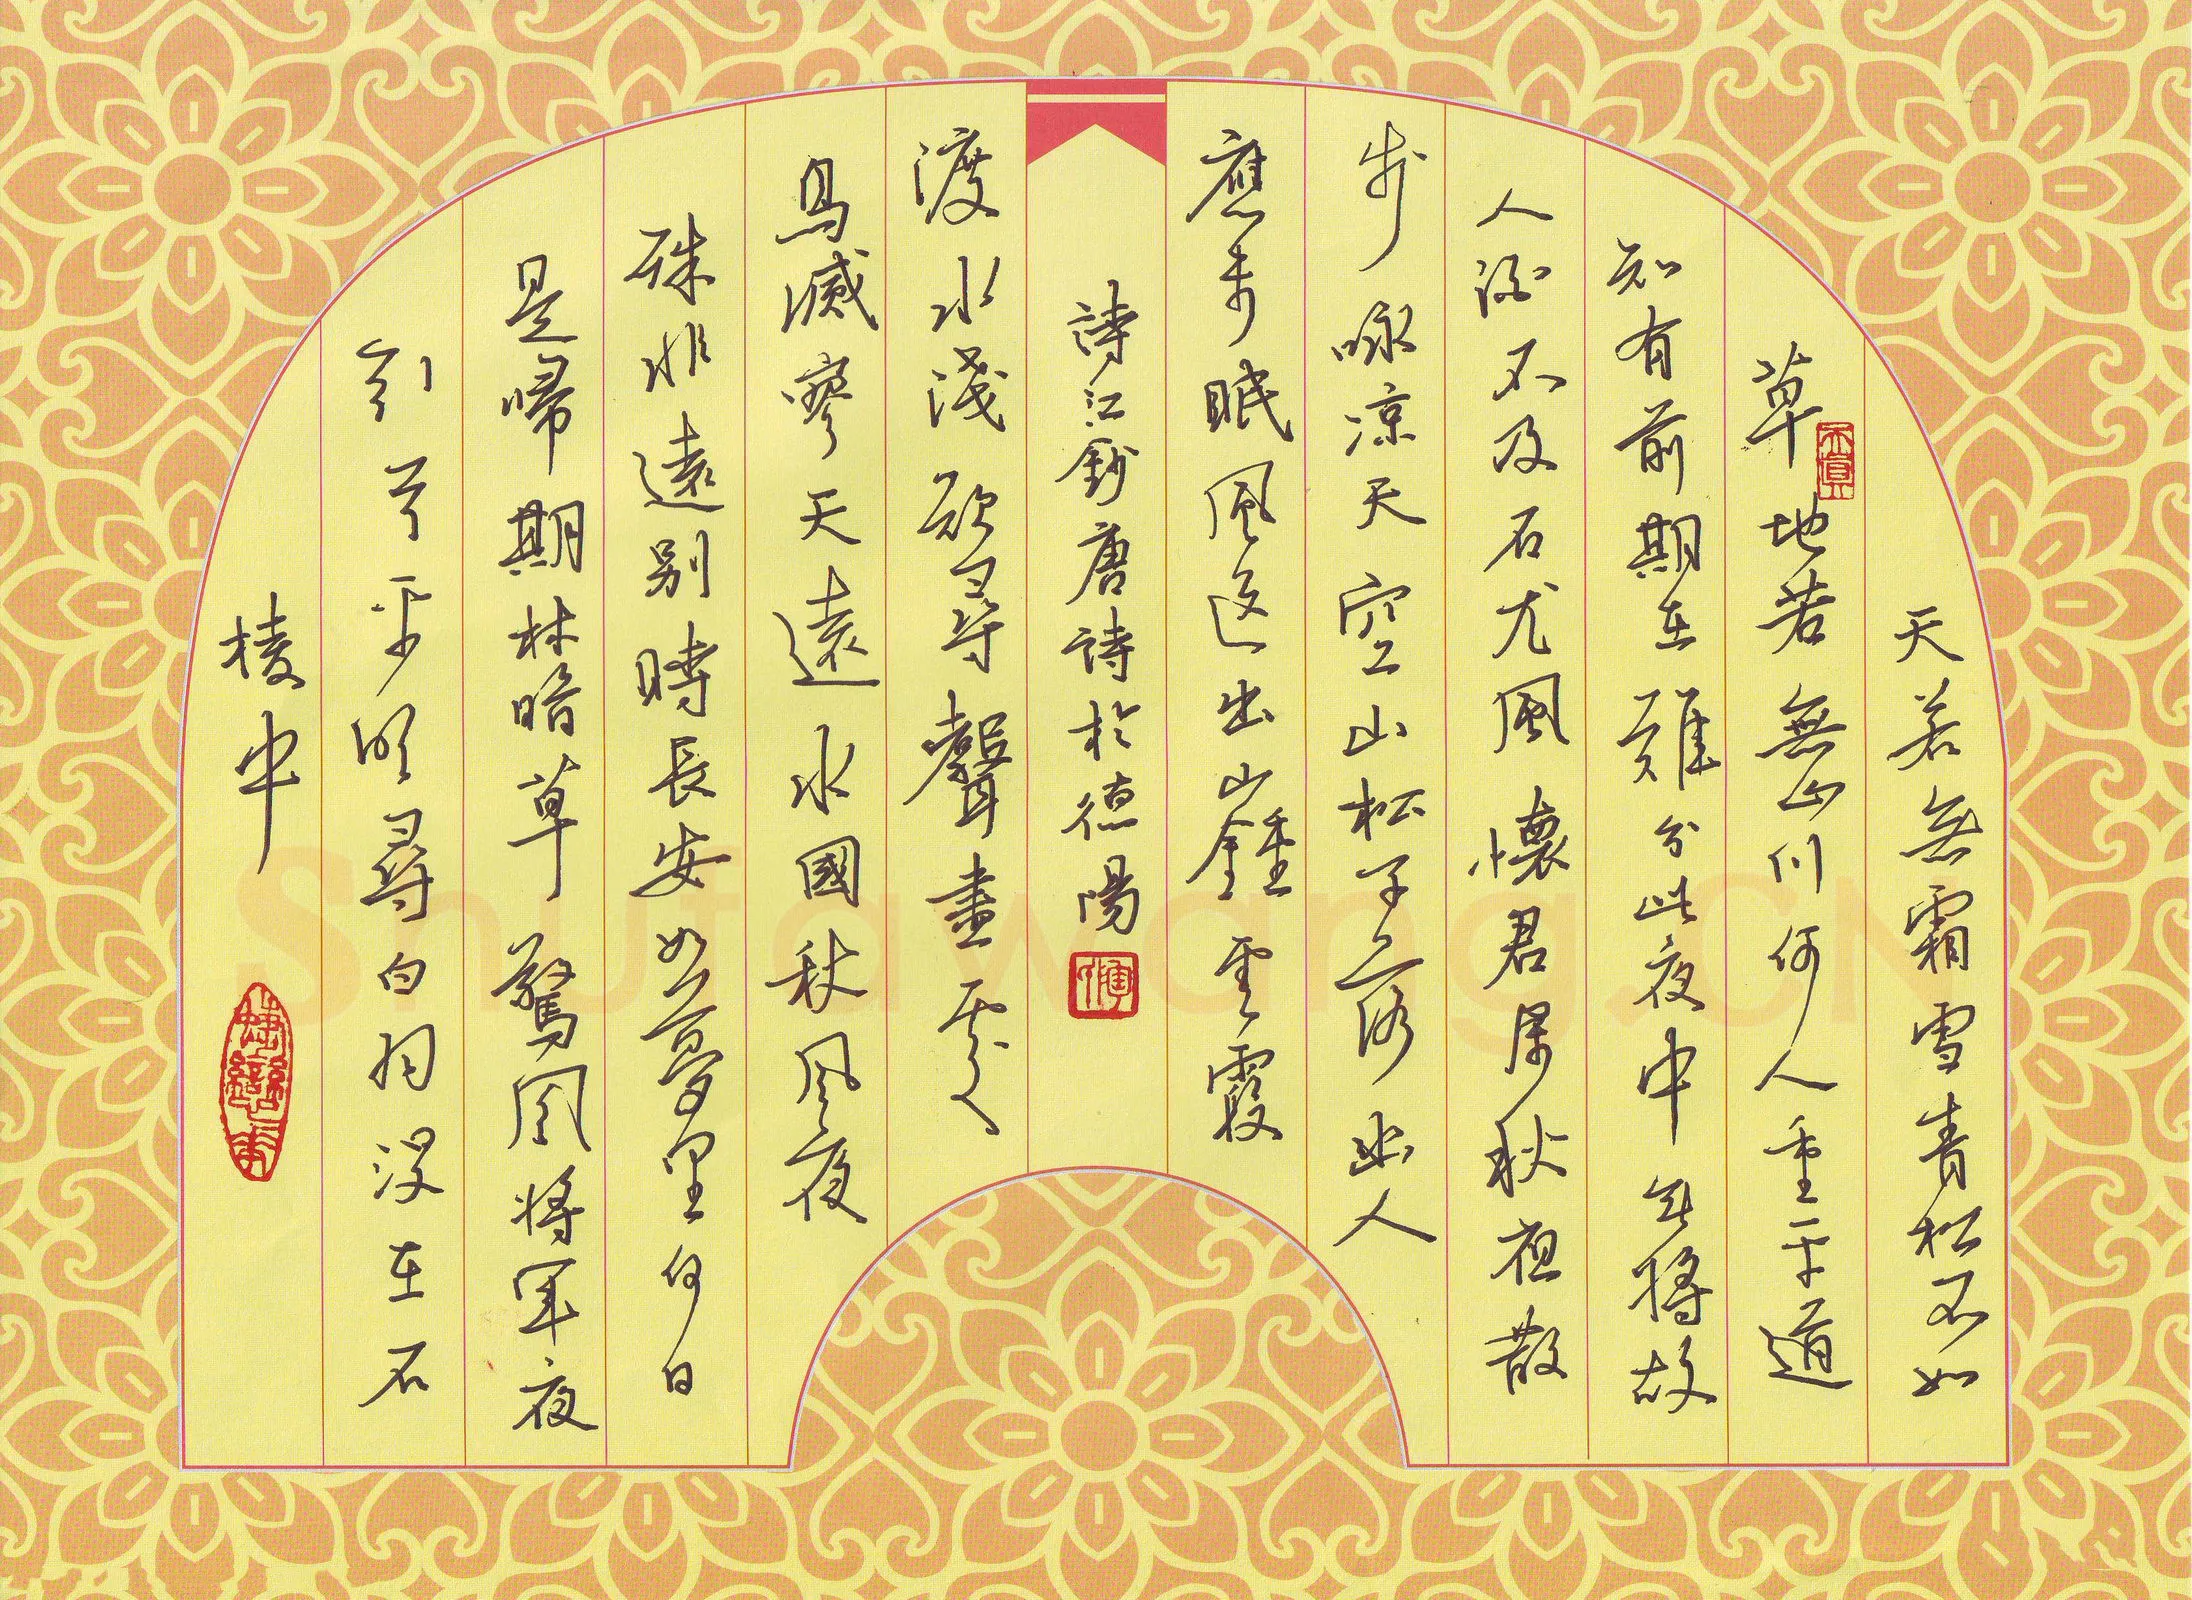 天若無霜雪青松不如
草地若無山川何人重平道
知有前期在難分此夜中無將故
人酒不及石尤風懷君屬秋夜散
步咏凉天空山松子落幽人
應未眠風送出山鐘雲霞
詩江鈔唐詩於德陽
渡水淺欲尋聲盡處
鳥滅寥天遠水國秋風夜
殊非遠別時長安如夢里何日
是歸期林暗草驚風將軍夜
引弓平明尋白羽沒在石
棱中
Shufawang.CN